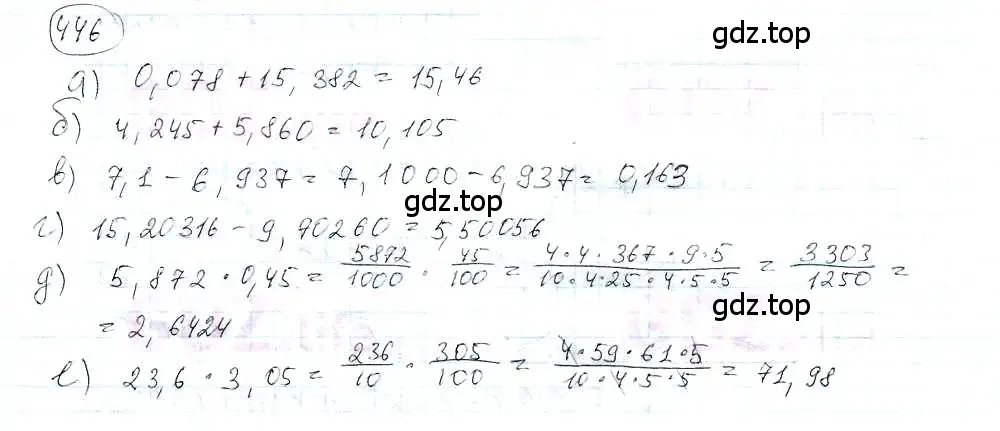 446
gdz.top
а) 0,078 + 15,382 = 15,46
б) 4,245 + 5,860 = 10,105
в) 7,1 - 6,937 = 7,1000 - 6,937 = 0,163
gdz.top
г) 15,20316 - 9,90260 = 5,50056
д) 5,872 · 0,45 = 5872/1000 · 45/100 = 4·4·367·9·5/10·4·25·4·5·5 = 3303/1250 =
gdz.top
= 2,6424
е) 23,6 · 3,05 = 236/10 · 305/100 = 4·59·61·5/10·4·5·5 = 71,98
gdz.top